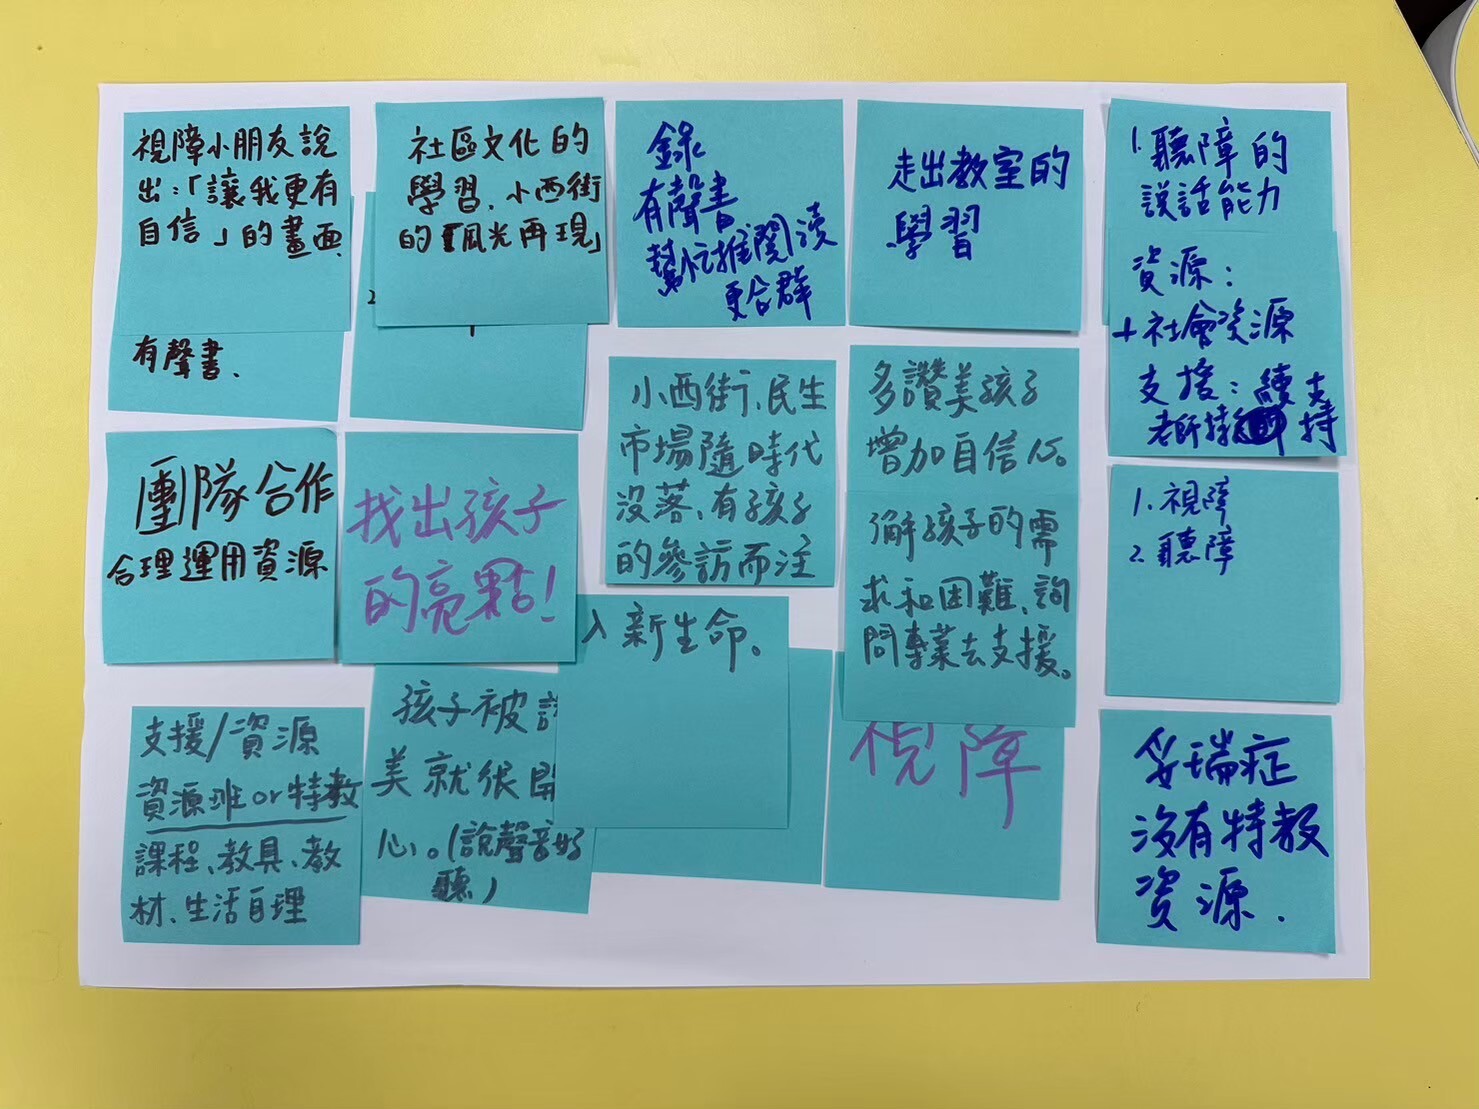 視障小朋友說
出:「讓我更有
自信」的畫面.
有聲書、
社區文化的
學習、小西街
的「風光再現」
2
錄
有聲書
幫忙推閱讀
更合群
走出教室的
學習
1. 聽障的
說話能力
資源:
社會資源
支援:
支
老師特
持
團隊合作
合理運用資源
找出孩子
的亮點!
小西街、民生
市場隨時代
沒落、有孩子
的參訪而注
入新生命。
多讚美孩子
增加自信心。
了解孩子的需
求和困難、詢
問專業去支援。
1. 視障
2. 聽障
支援/資源
資源班or特教
課程、教具、教
材、生活自理
孩子被
美就很開
心。(說聲音好
聽)
視障
妥瑞症
沒有特教
資源.